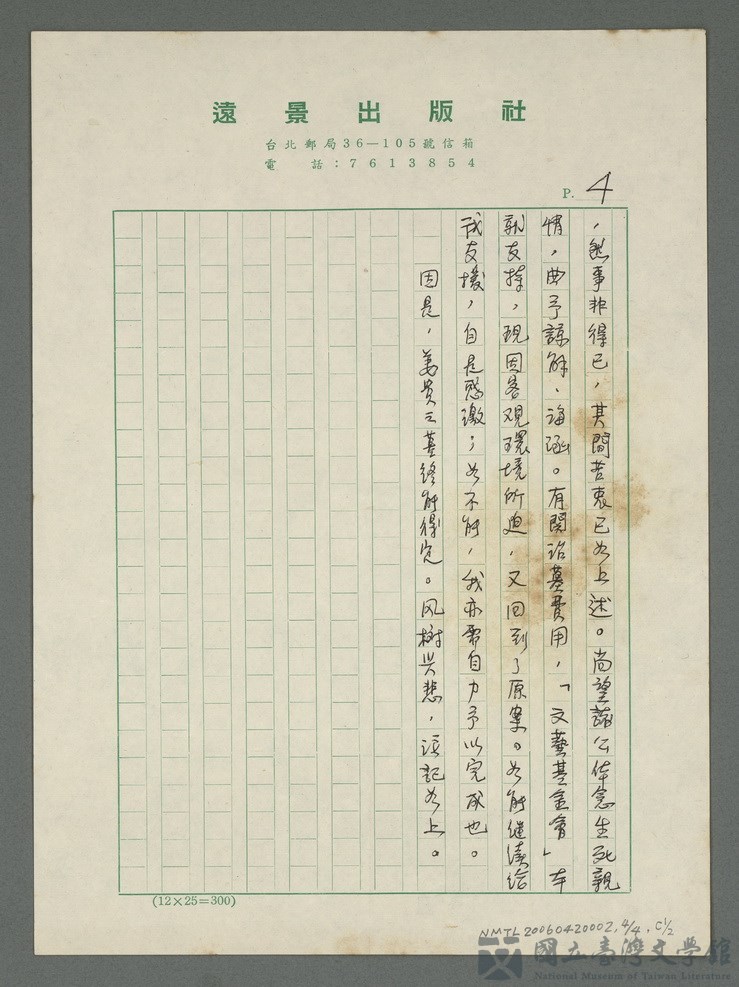 遠景出版社
台北郵局36—105號信箱
電話：7613854
P. 4
，然事非得已，其間苦衷已如上述。尚望諸公体念生死親
情，曲予諒解、海涵。有關治墓費用，「文藝基金會」本
, 現因客观環境所迫，又回到了原案。如能继续给
我支援，自是感激；如不能，我亦需自力予以完成也。
因是，姜貴之墓終能得完。风樹兴悲，誌記如上。
(12×25=300)
NMTL20060420002, 4/4, C1/2
國立臺灣文學館
National Museum of Taiwan Literature